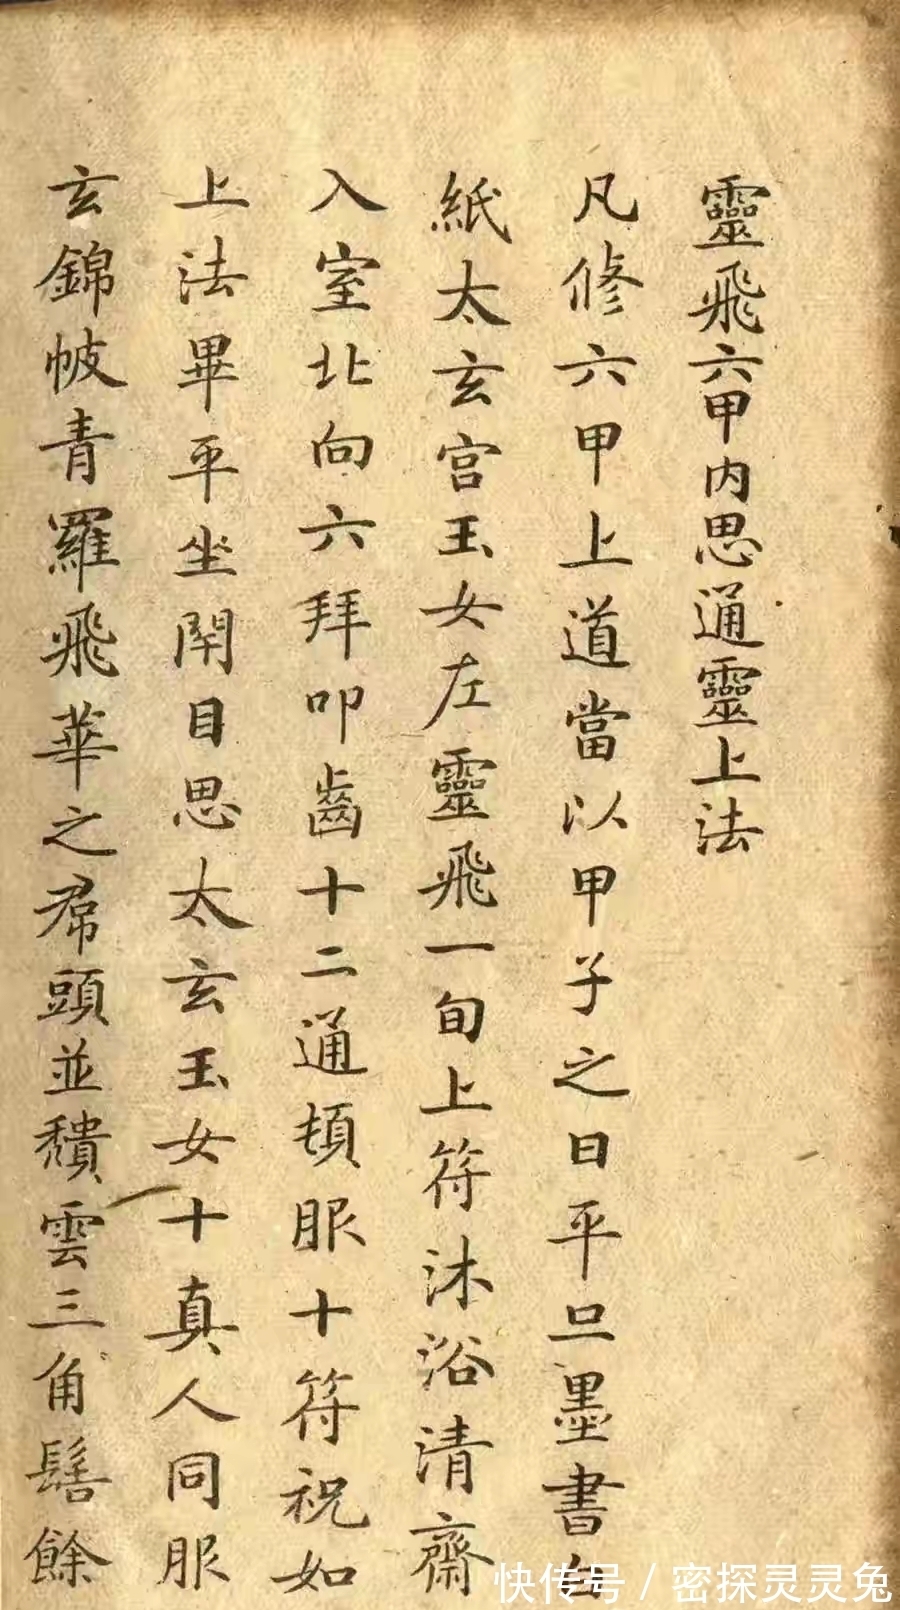 靈飛六甲內思通靈上法
凡修六甲上道當以甲子之日平旦墨書白
紙太玄宮玉女左靈飛一旬上符沐浴清齋
入室北向六拜叩齒十二通頓服十符祝如
上法畢平坐閇目思太玄玉女十真人同服
玄錦帔青羅飛華之帬頭並穨雲三角髻餘
快传号／密探灵灵兔